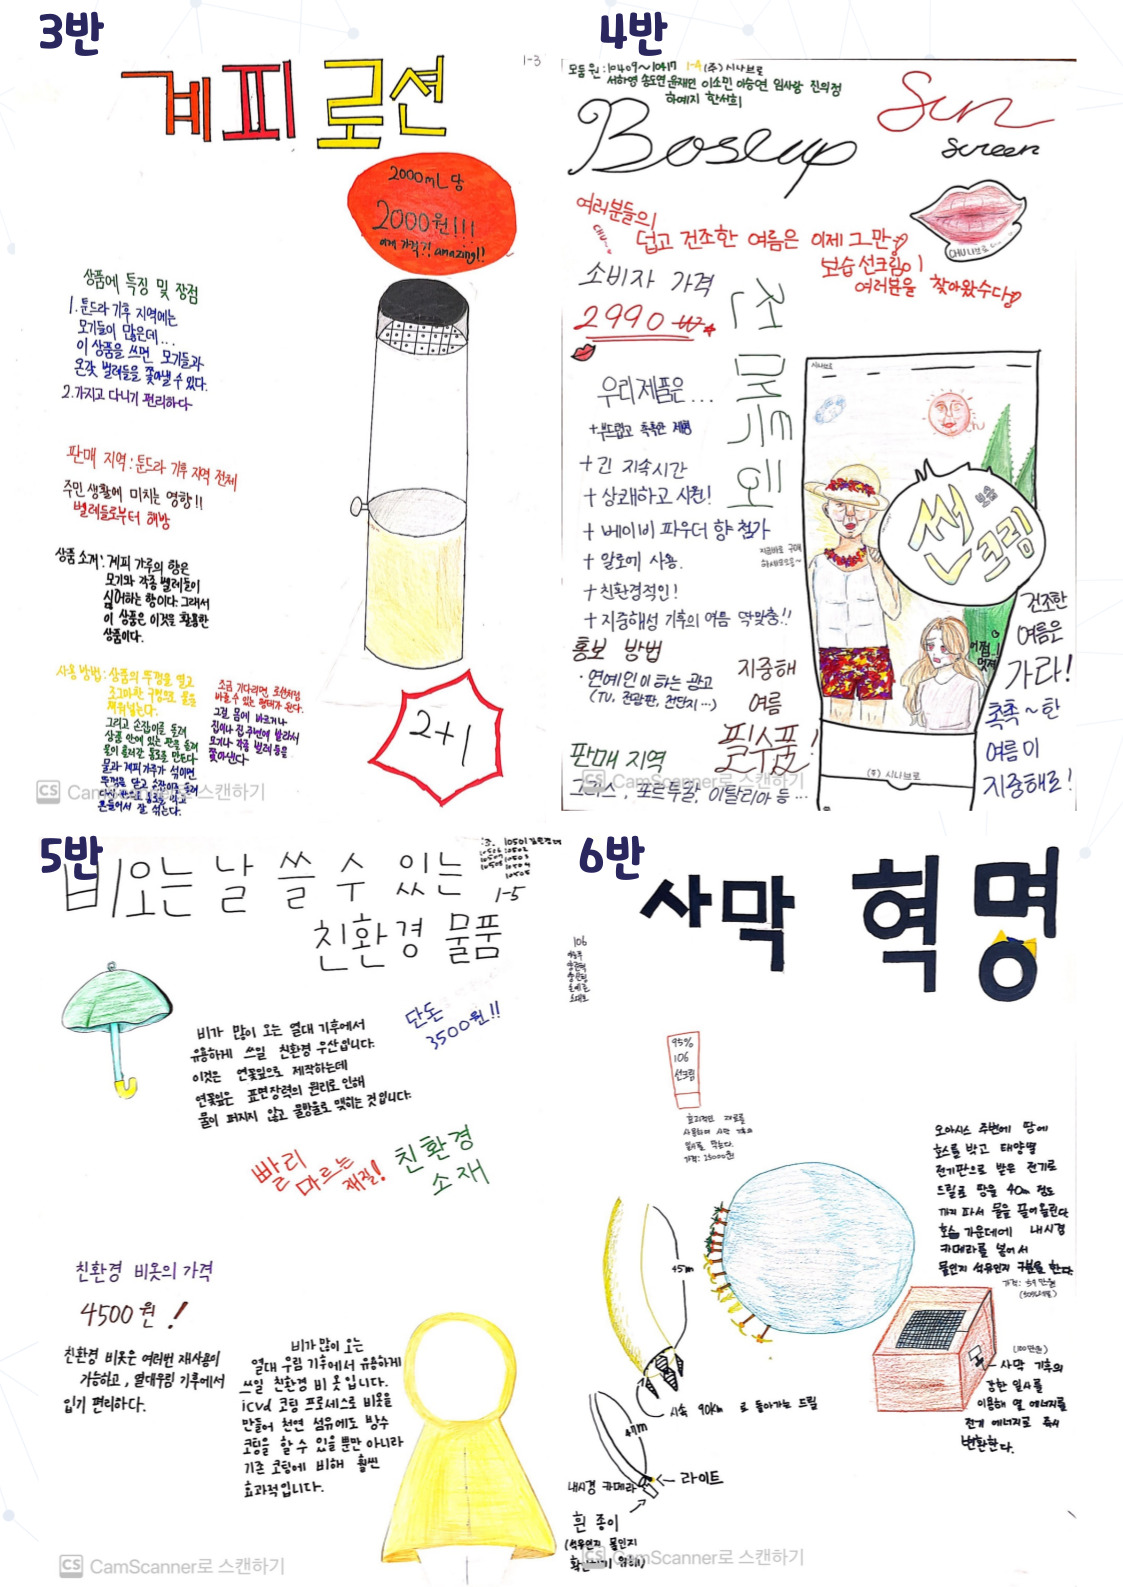 3반
1-3
계피 로션
2000mL 당
2000원!!!
이게 가격?! amazing!!
상품에 특징 및 장점
1. 툰드라 기후 지역에는
모기들이 많은데...
이 상품을 쓰면 모기들과
온갖 벌레들을 쫓아낼 수 있다.
2. 가지고 다니기 편리하다
판매 지역 : 툰드라 기후 지역 전체
주민 생활에 미치는 영향!!
벌레들로부터 해방
상품 소개 : 계피 가루의 향은
모기와 각종 벌레들이
싫어하는 향이다. 그래서
이 상품은 이것을 활용한
상품이다.
사용 방법 : 상품의 뚜껑을 열고
조그마한 구멍으로 물을
채워넣는다.
그리고 손잡이를 돌려
상품 안에 있는 판을 돌려
물이 흘러갈 통로를 만든다
물과 계피가루가 섞이면
뚜껑을 닫고 손잡이를 돌려
흔들어서 잘 섞는다.
조금 기다리면, 로션처럼
바를 수 있는 형태가 된다.
그걸 몸에 바르거나
집이나 집 주변에 발라서
모기나 각종 벌레 등을
쫓아낸다
2+1
CS CamScanner로 스캔하기
4반
모둠원 : 10409~10417 1-4 (주) 시나브로
서하영 송도연 윤재인 이소민 이승연 임사랑 진의정
하예지 한서희
Boseup
Sun
screen
여러분들의
덥고 건조한 여름은 이제 그만
보습 선크림이
여러분을 찾아왔수다
CHU
소비자 가격
2990 ₩
우리 제품은...
+ 부드럽고 촉촉한 제형
+ 긴 지속시간
+ 상쾌하고 시원!
+ 베이비 파우더 향 첨가
+ 알로에 사용.
+ 친환경적인!
+ 지중해성 기후의 여름 딱맞춤!!
홍보 방법
· 연예인이 하는 광고
(TV, 전광판, 전단지...)
판매 지역
포르투갈, 이탈리아 등...
지중해
여름
필수품!
시나브로
보습
썬
크림
어쩜..!
멋져
(주) 시나브로
건조한
여름은
가라!
촉촉~한
여름이
지중해로!
CS CamScanner로 스캔하기
5반
비오는 날 쓸 수 있는
친환경 물품
1-5
단돈
3500원!!
비가 많이 오는 열대 기후에서
유용하게 쓰일 친환경 우산입니다.
이것은 연꽃잎으로 제작하는데
연꽃잎은 표면장력의 원리로 인해
물이 퍼지지 않고 물방울로 맺히는 것입니다.
빨리
마르는
재질!
친환경
소재
친환경 비옷의 가격
4500원!
친환경 비옷은 여러번 재사용이
가능하고, 열대우림 기후에서
입기 편리하다.
비가 많이 오는
열대 우림 기후에서 유용하게
쓰일 친환경 비옷입니다.
icvd 코팅 프로세스로 비옷을
만들어 천연 섬유에도 방수
코팅을 할 수 있을뿐만 아니라
기존 코팅에 비해 훨씬
효과적입니다.
CS CamScanner로 스캔하기
6반
사막 혁명
106
95%
106
선크림
효과적인 재료를
사용하여 사막 기후의
가격: 25000원
오아시스 주변에 땅에
호스를 박고 태양열
전기판으로 받은 전기로
드릴로 땅을 40m 정도
까지 파서 물을 끌어올린다
호스 가운데에 내시경
카메라를 넣어서
물인지 석유인지 구별을 한다.
45m
시속 90km 로 돌아가는 드릴
47m
내시경 카메라
라이트
흰 종이
(석유인지 물인지
확인하기 위해)
(100만원)
사막 기후의
강한 일사를
이용해 열 에너지를
전기 에너지로 즉시
변환한다.
CS CamScanner로 스캔하기